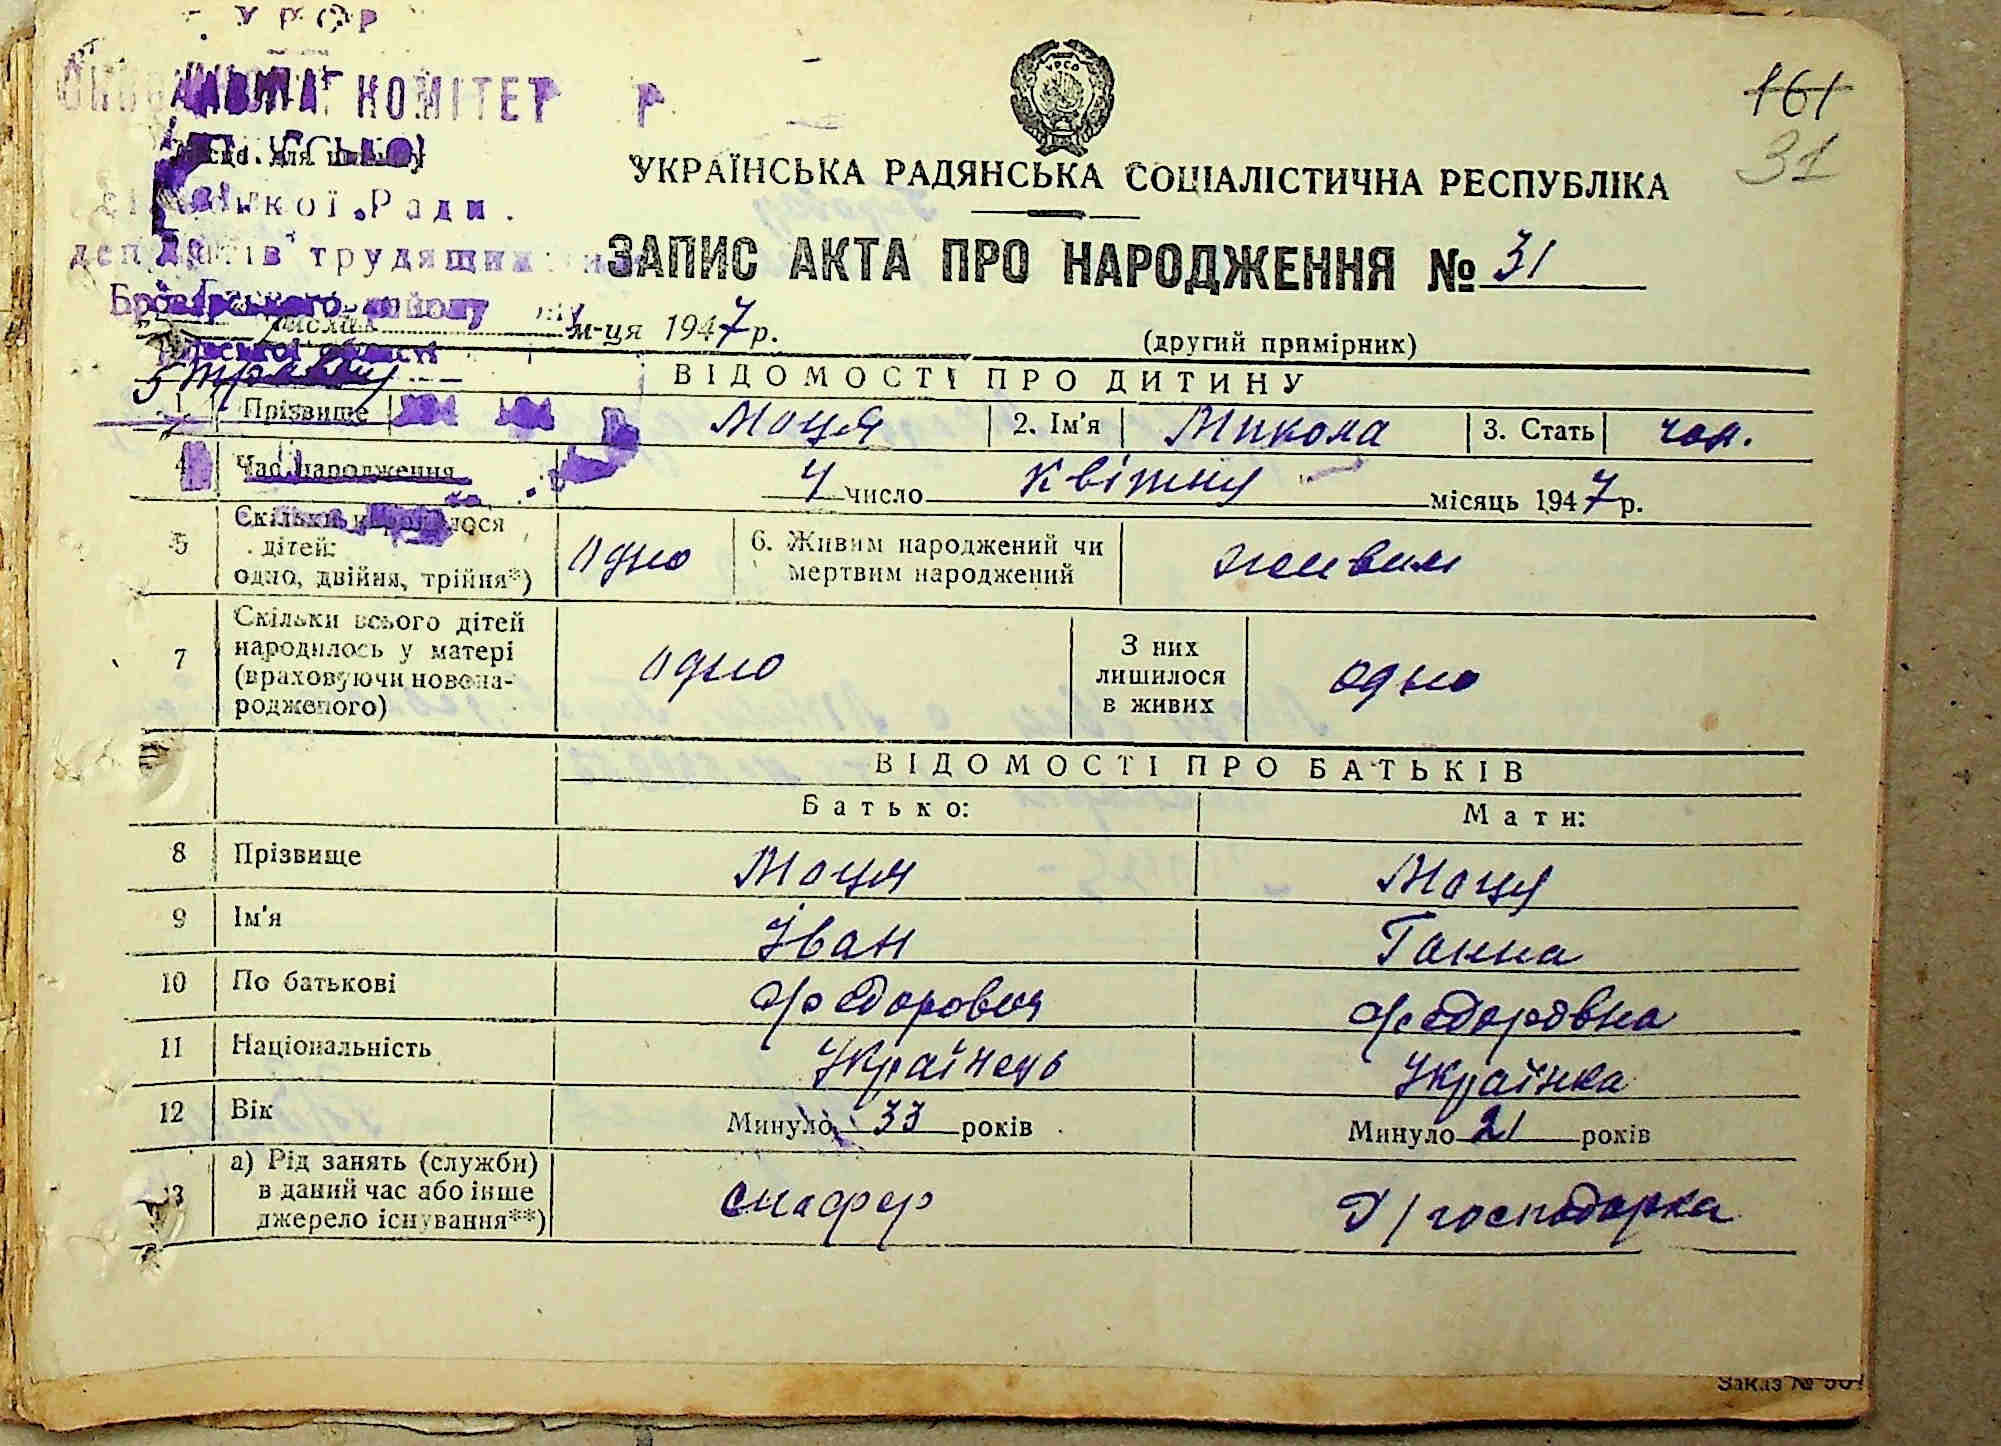 УРСР
КОМІТЕТ
161
31
УКРАЇНСЬКА РАДЯНСЬКА СОЦІАЛІСТИЧНА РЕСПУБЛІКА
кої Ради
депутатів трудящих
ЗАПИС АКТА ПРО НАРОДЖЕННЯ № 31
Броварського району
м-ця 1947 р.
(другий примірник)
Київської області
5 травня
ВІДОМОСТІ ПРО ДИТИНУ
1 Прізвище Моця 2. Ім'я Микола 3. Стать чол.
4 Час народження 4 число квітня місяць 1947 р.
5 Скільки народилося дітей: одно, двійня, трійня*) одно 6. Живим народжений чи мертвим народжений живим
7 Скільки всього дітей народилось у матері (враховуючи новона-родженого) одно З них лишилося в живих одно
ВІДОМОСТІ ПРО БАТЬКІВ
Батько: Мати:
8 Прізвище Моця Моця
9 Ім'я Іван Ганна
10 По батькові Федорович Федорівна
11 Національність Українець Українка
12 Вік Минуло 33 років Минуло 21 років
13 а) Рід занять (служби) в даний час або інше джерело існування**) шофер Д/господарка
Заказ №